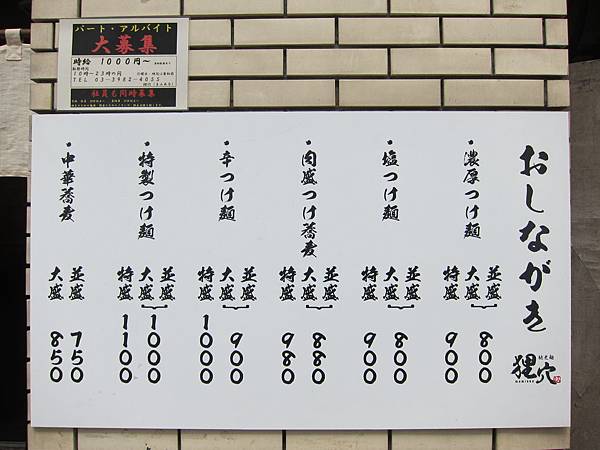 パート・アルバイト
大募集
時給 1000円〜
10時〜23時の間
TEL 03-3982-4055
社員も同時募集
おしながき
狸穴
・濃厚つけ麺
並盛 大盛 800
特盛 900
・塩つけ麺
並盛 大盛 800
特盛 900
・肉盛つけ蕎麦
並盛 大盛 880
特盛 980
・辛つけ麺
並盛 大盛 900
特盛 1000
・特製つけ麺
並盛 大盛 1000
特盛 1100
・中華蕎麦
並盛 750
大盛 850